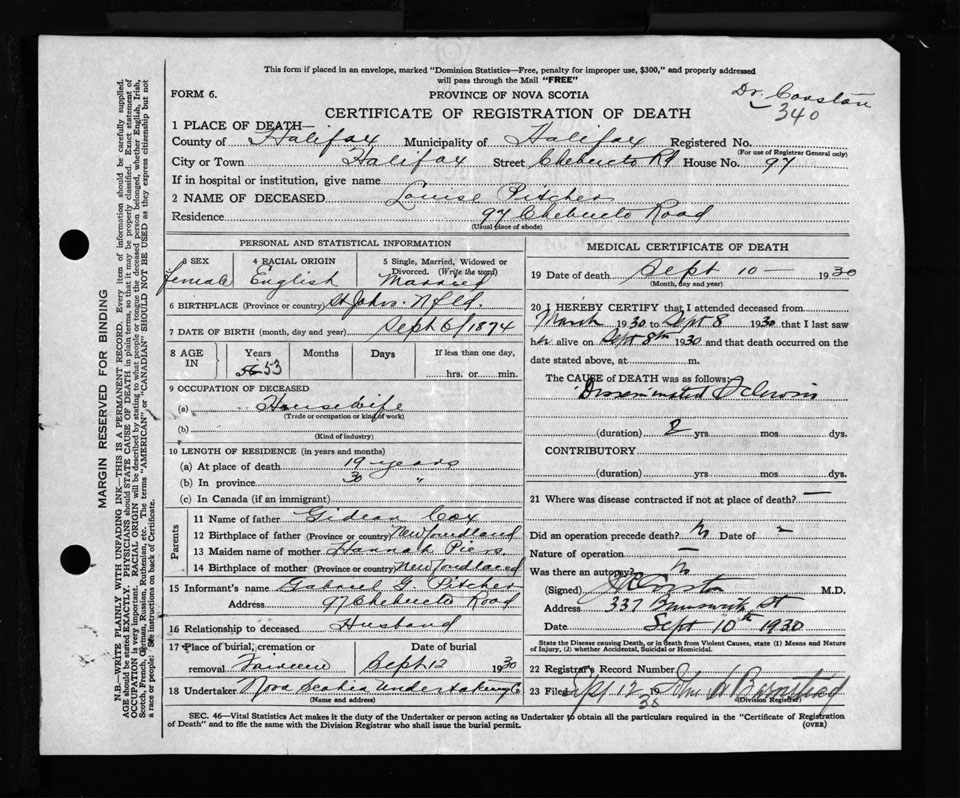 This form if placed in an envelope, marked "Dominion Statistics—Free, penalty for improper use, $300," and properly addressed
will pass through the Mail "FREE"
FORM 6.
PROVINCE OF NOVA SCOTIA
Dr.
340
CERTIFICATE OF REGISTRATION OF DEATH
1 PLACE OF DEATH—
County of Halifax Municipality of Halifax Registered No.
(For use of Registrar General only)
City or Town Halifax Street Chebucto Rd House No. 97
If in hospital or institution, give name
2 NAME OF DECEASED Louise Pitcher
Residence 97 Chebucto Road
(Usual place of abode)
PERSONAL AND STATISTICAL INFORMATION
3 SEX 4 RACIAL ORIGIN 5 Single, Married, Widowed or
Divorced. (Write the word)
female English Married
6 BIRTHPLACE (Province or country) St Johns. Nfld.
7 DATE OF BIRTH (month, day and year) Sept 6/1874
8 AGE IN Years Months Days If less than one day,
56 53 hrs. or min.
9 OCCUPATION OF DECEASED
(a) Housewife
(Trade or occupation or kind of work)
(b)
(Kind of industry)
10 LENGTH OF RESIDENCE (in years and months)
(a) At place of death 19 years
(b) In province 30 "
(c) In Canada (if an immigrant)
Parents
11 Name of father Gideon Cox
12 Birthplace of father (Province or country) Newfoundland
13 Maiden name of mother Hannah
14 Birthplace of mother (Province or country) Newfoundland
15 Informant's name Gabriel G. Pitcher
Address 97 Chebucto Road
16 Relationship to deceased Husband
17 Place of burial, cremation or Date of burial
removal Fairview Sept 12 1930
18 Undertaker Nova Scotia Undertaking Co
(Name and address)
MEDICAL CERTIFICATE OF DEATH
19 Date of death Sept 10 — 1930
(Month, day and year)
20 I HEREBY CERTIFY that I attended deceased from
March 1930 to Sept 8 1930 that I last saw
her alive on Sept 8th 1930 and that death occurred on the
date stated above, at m.
The CAUSE of DEATH was as follows:
Disseminated Sclerosis
(duration) 2 yrs mos dys.
CONTRIBUTORY
(duration) yrs mos dys.
21 Where was disease contracted if not at place of death? —
Did an operation precede death? No Date of —
Nature of operation —
Was there an autopsy? No
(Signed) M.D.
Address 337 Brunswick St
Date Sept 10th 1930
State the Disease causing Death, or in Death from Violent Causes, state (1) Means and Nature
of Injury, (2) whether Accidental, Suicidal or Homicidal.
22 Registrar's Record Number
23 Filed Sept 12 1930 John A
(Division Registrar)
SEC. 46—Vital Statistics Act makes it the duty of the Undertaker or person acting as Undertaker to obtain all the particulars required in the "Certificate of Registration
of Death" and to file the same with the Division Registrar who shall issue the burial permit.
(OVER)
MARGIN RESERVED FOR BINDING
N.B.—WRITE PLAINLY WITH UNFADING INK—THIS IS A PERMANENT RECORD. Every item of information should be carefully supplied.
AGE should be stated EXACTLY. PHYSICIANS should STATE CAUSE OF DEATH in plain terms, so that it may be properly classified. Exact statement of
OCCUPATION is very important. RACIAL ORIGIN will be described by stating to what people or tongue the deceased person belonged, whether English, Irish,
Scotch, French, German, Russian, Ruthenian, etc. The terms "AMERICAN" or "CANADIAN" SHOULD NOT BE USED as they express citizenship but not
a race or people. See instructions on back of Certificate.